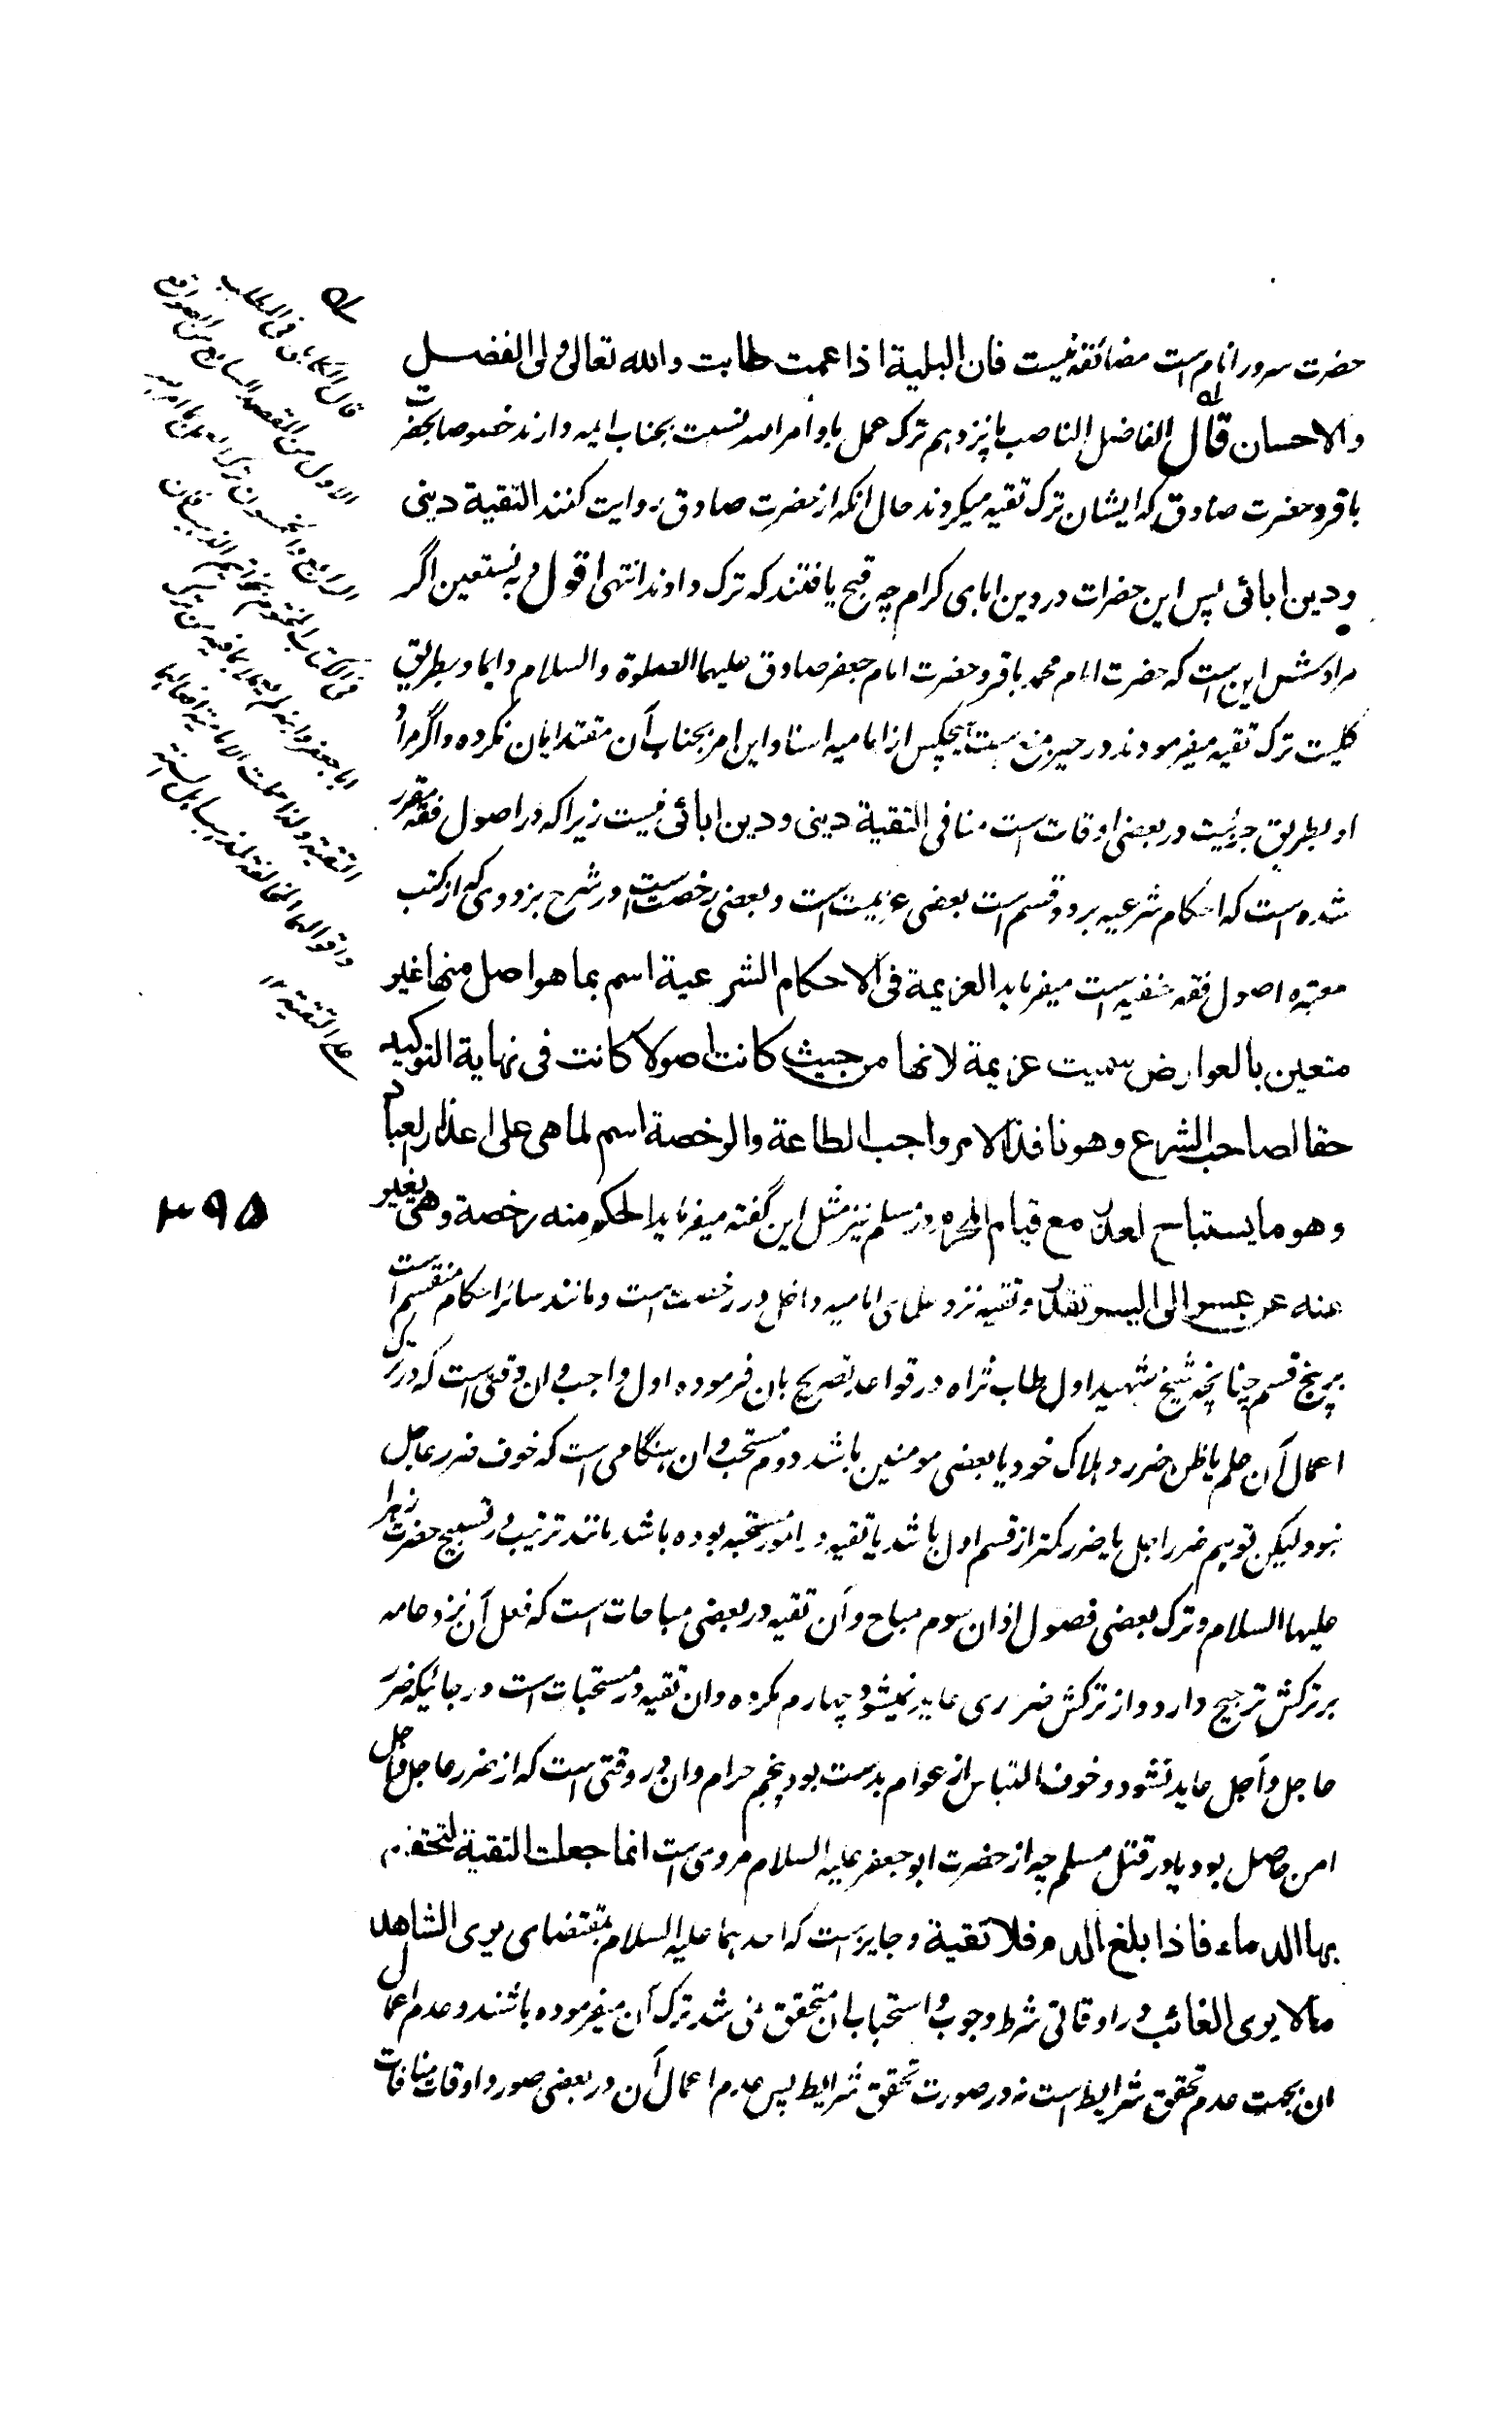 حضرت سرور انام است مضائقه نیست فان البلیة اذا عمت طابت والله تعالی ولی الفضل
والاحسان قال الفاضل الناصب پانزدهم ترک عمل باوامر الله نسبت بجناب ایمه دارند خصوصا بحضرت
باقر و حضرت صادق که ایشان ترک تقیه میکردند حال انکه از حضرت صادق روایت کنند التقیة دینی
ودین ابائی پس این حضرات در دین ابای کرام چه قبح یافتند که ترک دادند انتهی اقول وبه نستعین اگر
مرادش این است که حضرت امام محمد باقر و حضرت امام جعفر صادق علیهما الصلوة والسلام دایما و بطریق
کلیت ترک تقیه میفرمودند در حیز منع است هیچکس از امامیه اسناد این امر بجناب آن مقتدایان نکرده و اگر مراد
او بطریق جزئیت در بعضی اوقات است منافی التقیة دینی و دین ابائی نیست زیرا که در اصول فقه مقرر
شده است که احکام شرعیه بر دو قسم است بعضی عزیمت است و بعضی رخصت است در شرح بزدوی که از کتب
معتبره اصول فقه حنفیه است میفرماید العزیمة فی الاحکام الشرعیة اسم بما هو اصل منها غیر
متعین بالعوارض سمیت عزیمة لانها من حیث کانت اصولا کانت فی نهایة التوکید
حقا لصاحب الشرع وهو نافذ الامر واجب الطاعة والرخصة اسم لما هی علی اعذار العباد
وهو ما یستباح لعذر مع قیام المحرم و در مسلم نیز مثل این گفته میفرماید الحکم منه رخصة وهی تغیر
عنه عن عسر الی الیسر بعذر و تقیه نزد علمای امامیه داخل در رخصت است و مانند سائر احکام منقسم است
بر پنج قسم چنانچه شیخ شهید اول طاب ثراه در قواعد تصریح بان فرموده اول واجب و ان وقتی است که در ترک
اعمال آن علم یا ظن ضرر و هلاک خود یا بعضی مومنین باشد دوم مستحب و ان هنگامی است که خوف ضرر عاجل
نبود لیکن توهم ضرر اجل یا ضرر کمتر از قسم اول باشد یا تقیه در امور مستحبه بوده باشد مانند ترتیب در تسبیح حضرت زهرا
علیها السلام و ترک بعضی فصول اذان سوم مباح و آن تقیه در بعضی مباحات است که فعل آن نزد عامه
بر ترکش ترجیح دارد و از ترکش ضرری عاید نمیشود چهارم مکروه و ان تقیه در مستحبات است در جائیکه ضرر
عاجل و آجل عاید نشود و خوف التباس از عوام بدست بود پنجم حرام و ان در وقتی است که از ضرر عاجل و آجل
امن حاصل بود یا در قتل مسلم چه از حضرت ابو جعفر علیه السلام مروی است انما جعلت التقیة لتحقن
بها الدماء فاذا بلغ الدم فلا تقیة و جایز است که احدهما علیه السلام بمقتضای یری الشاهد
مالا یری الغائب در اوقاتی شرط وجوب و استحباب ان متحقق نمی شد ترک آن میفرموده باشند و عدم اعمال
ان بجهت عدم تحقق شرایط است نه در صورت تحقق شرایط پس عدم اعمال آن در بعضی صور و اوقات منافات
قال الکابلی فی المطلب
الاول من المقصد السابع من الصواقع
الرابع والخمسون ترک العمل بما امر به
فی الکتاب المختوم بخواتیم الذهب فان
ابا جعفر وابنه لم یعملا بما فیه من ترک
التقیة
واقوالهما المخالفة لمذهب اهل السنة
علی التقیة ۱۲
۳۹۵